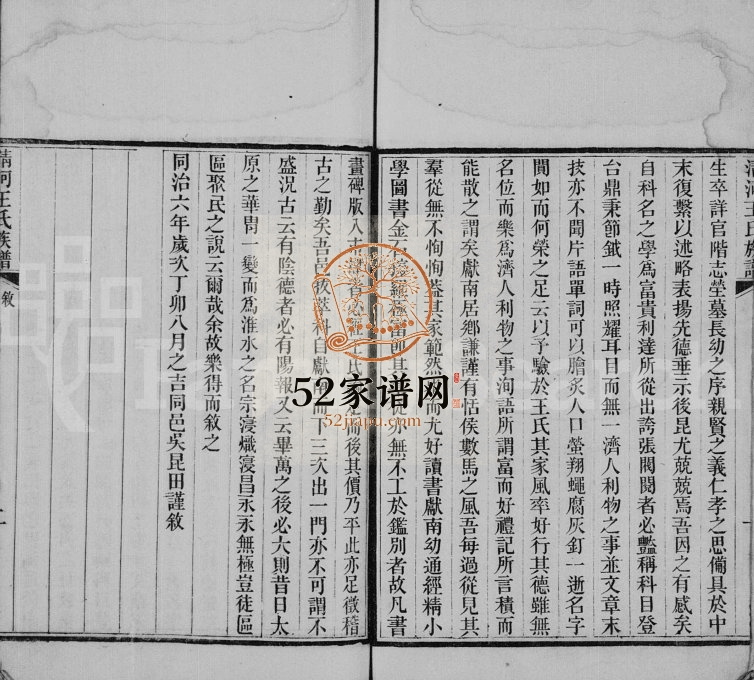 清河王氏族譜
生卒詳官階志塋墓長幼之序親賢之義仁孝之思備具於中
末復繫以述略表揚先德垂示後昆尤兢兢焉吾因之有感矣
自科名之學爲富貴利達所從出誇張閥閱者必豔稱科目登
台鼎秉節鉞一時照耀耳目而無一濟人利物之事並文章末
技亦不聞片語單詞可以膾炙人口螢翔蠅腐灰釘一逝名字
闃如而何榮之足云以予驗於王氏其家風率好行其德雖無
名位而樂爲濟人利物之事洵語所謂富而好禮記所言積而
能散之謂矣獻南居鄉謙謹有恬侯數馬之風吾每過從見其
羣從無不恂恂蓋其家範然而尤好讀書獻南幼通經精小
學圖書金石羅極富即其從亦無不工於鑑別者故凡書
畫碑版入市者必經王氏而後其價乃平此亦足徵稽
古之勤矣吾邑拔萃科自獻南而下三次出一門亦不可謂不
盛況古云有陰德者必有陽報又云畢萬之後必大則昔日太
原之華胄一變而爲淮水之名宗寖熾寖昌永永無極豈徒區
區聚民之說云爾哉余故樂得而敘之
同治六年歲次丁卯八月之吉同邑吳昆田謹敘
清河王氏族譜
敘
52家谱网
52jiapu.com